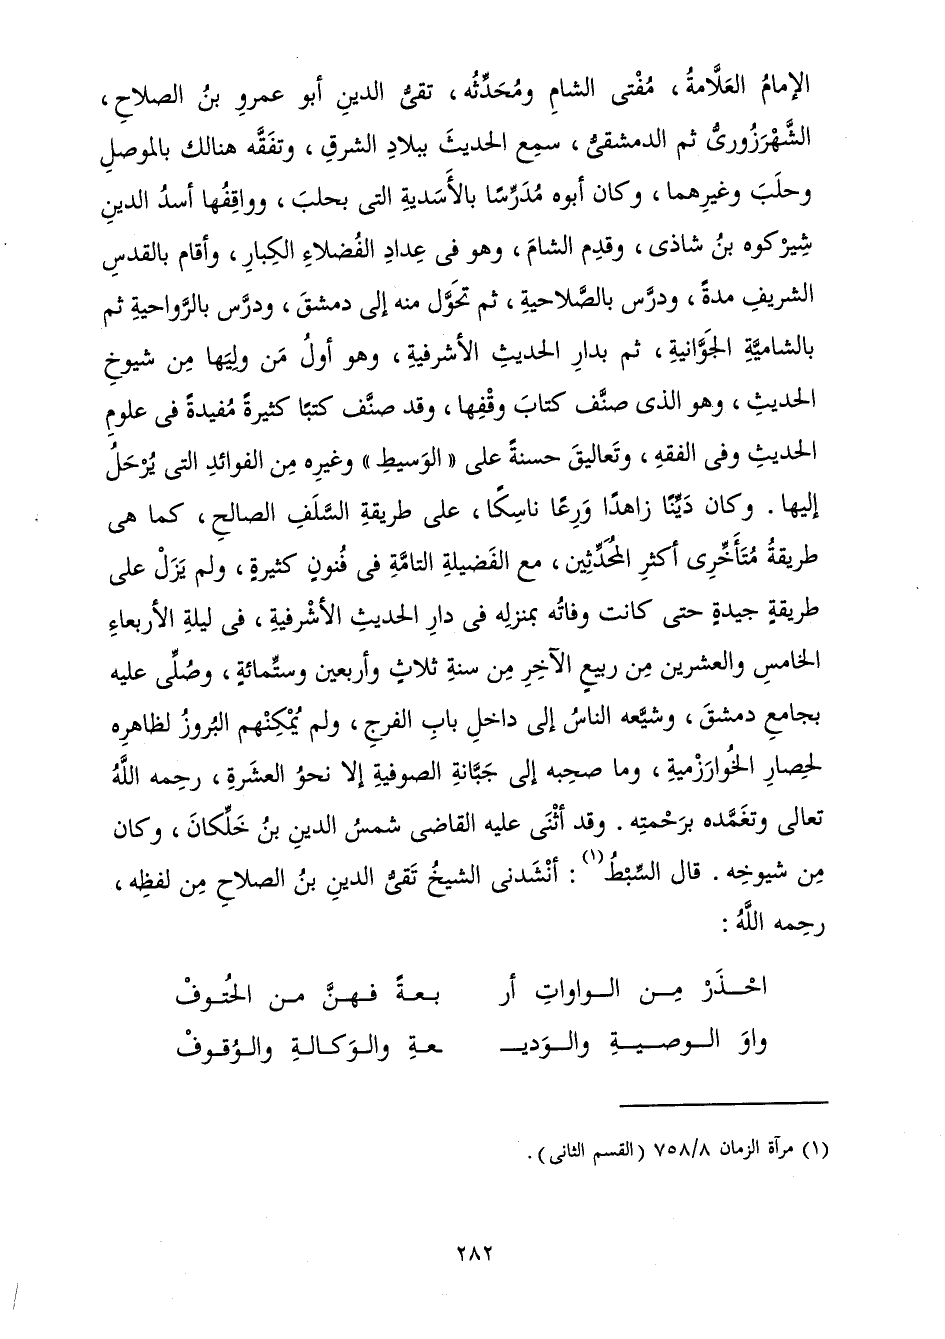 الإمامُ العَلَّامةُ ، مُفْتى الشامِ ومُحَدِّثُه ، تقىُّ الدينِ أبو عمرِو بنُ الصلاحِ ،
الشَّهْرَزُورىُّ ثم الدمشقىُّ ، سمِع الحديثَ ببلادِ الشرقِ ، وتفَقَّه هنالك بالموصلِ
وحلَبَ وغيرِهما ، وكان أبوه مُدَرِّسًا بالأَسَديةِ التى بحلبَ ، وواقِفُها أسدُ الدينِ
شِيرْكوه بنُ شاذى ، وقدِم الشامَ ، وهو فى عِدادِ الفُضلاءِ الكِبارِ ، وأقام بالقدسِ
الشريفِ مدةً ، ودرَّس بالصَّلاحيةِ ، ثم تحَوَّل منه إلى دمشقَ ، ودرَّس بالرَّواحيةِ ثم
بالشاميَّةِ الجَوَّانيةِ ، ثم بدارِ الحديثِ الأشرفيةِ ، وهو أولُ مَن وَلِيَها مِن شيوخِ
الحديثِ ، وهو الذى صنَّف كتابَ وقْفِها ، وقد صنَّف كتبًا كثيرةً مُفيدةً فى علومِ
الحديثِ وفى الفقهِ ، وتَعاليقَ حسنةً على « الوَسيطِ » وغيرِه مِن الفوائدِ التى يُرْحَلُ
إليها . وكان دَيِّنًا زاهدًا وَرِعًا ناسِكًا ، على طريقةِ السَّلَفِ الصالحِ ، كما هى
طريقةُ مُتَأَخِّرِى أكثرِ المُحَدِّثِين ، مع الفَضيلةِ التامَّةِ فى فُنونٍ كثيرةٍ ، ولم يَزَلْ على
طريقةٍ جيدةٍ حتى كانت وفاتُه بمنزلِه فى دارِ الحديثِ الأشْرفيةِ ، فى ليلةِ الأربعاءِ
الخامسِ والعشرين مِن ربيعٍ الآخِرِ مِن سنةِ ثلاثٍ وأربعين وستِّمائةٍ ، وصُلِّى عليه
بجامعِ دمشقَ ، وشيَّعه الناسُ إلى داخلِ بابِ الفرجِ ، ولم يُمْكِنْهم البُروزُ لظاهرِه
لحِصارِ الخُوارَزْميةِ ، وما صحِبه إلى جَبَّانةِ الصوفيةِ إلا نحوُ العشَرةِ ، رحِمه اللَّهُ
تعالى وتغَمَّده برَحْمتِه . وقد أثْنَى عليه القاضى شمسُ الدينِ بنُ خَلِّكانَ ، وكان
مِن شيوخِه . قال السِّبْطُ(١) : أنْشَدنى الشيخُ تَقىُّ الدينِ بنُ الصلاحِ مِن لفظِه ،
رحِمه اللَّهُ :
احْـذَرْ مِـن الـواواتِ أر بـعـةً فـهـنَّ مـن الحُتـوفْ
واوَ الـوصـيـةِ والـوَديـ ـعةِ والوَكـالـةِ والـوُقـوفْ
(١) مرآة الزمان ٧٥٨/٨ (القسم الثانى) .
٢٨٢